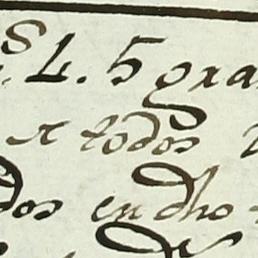 S L. 5 gra
A todos
dos en dho